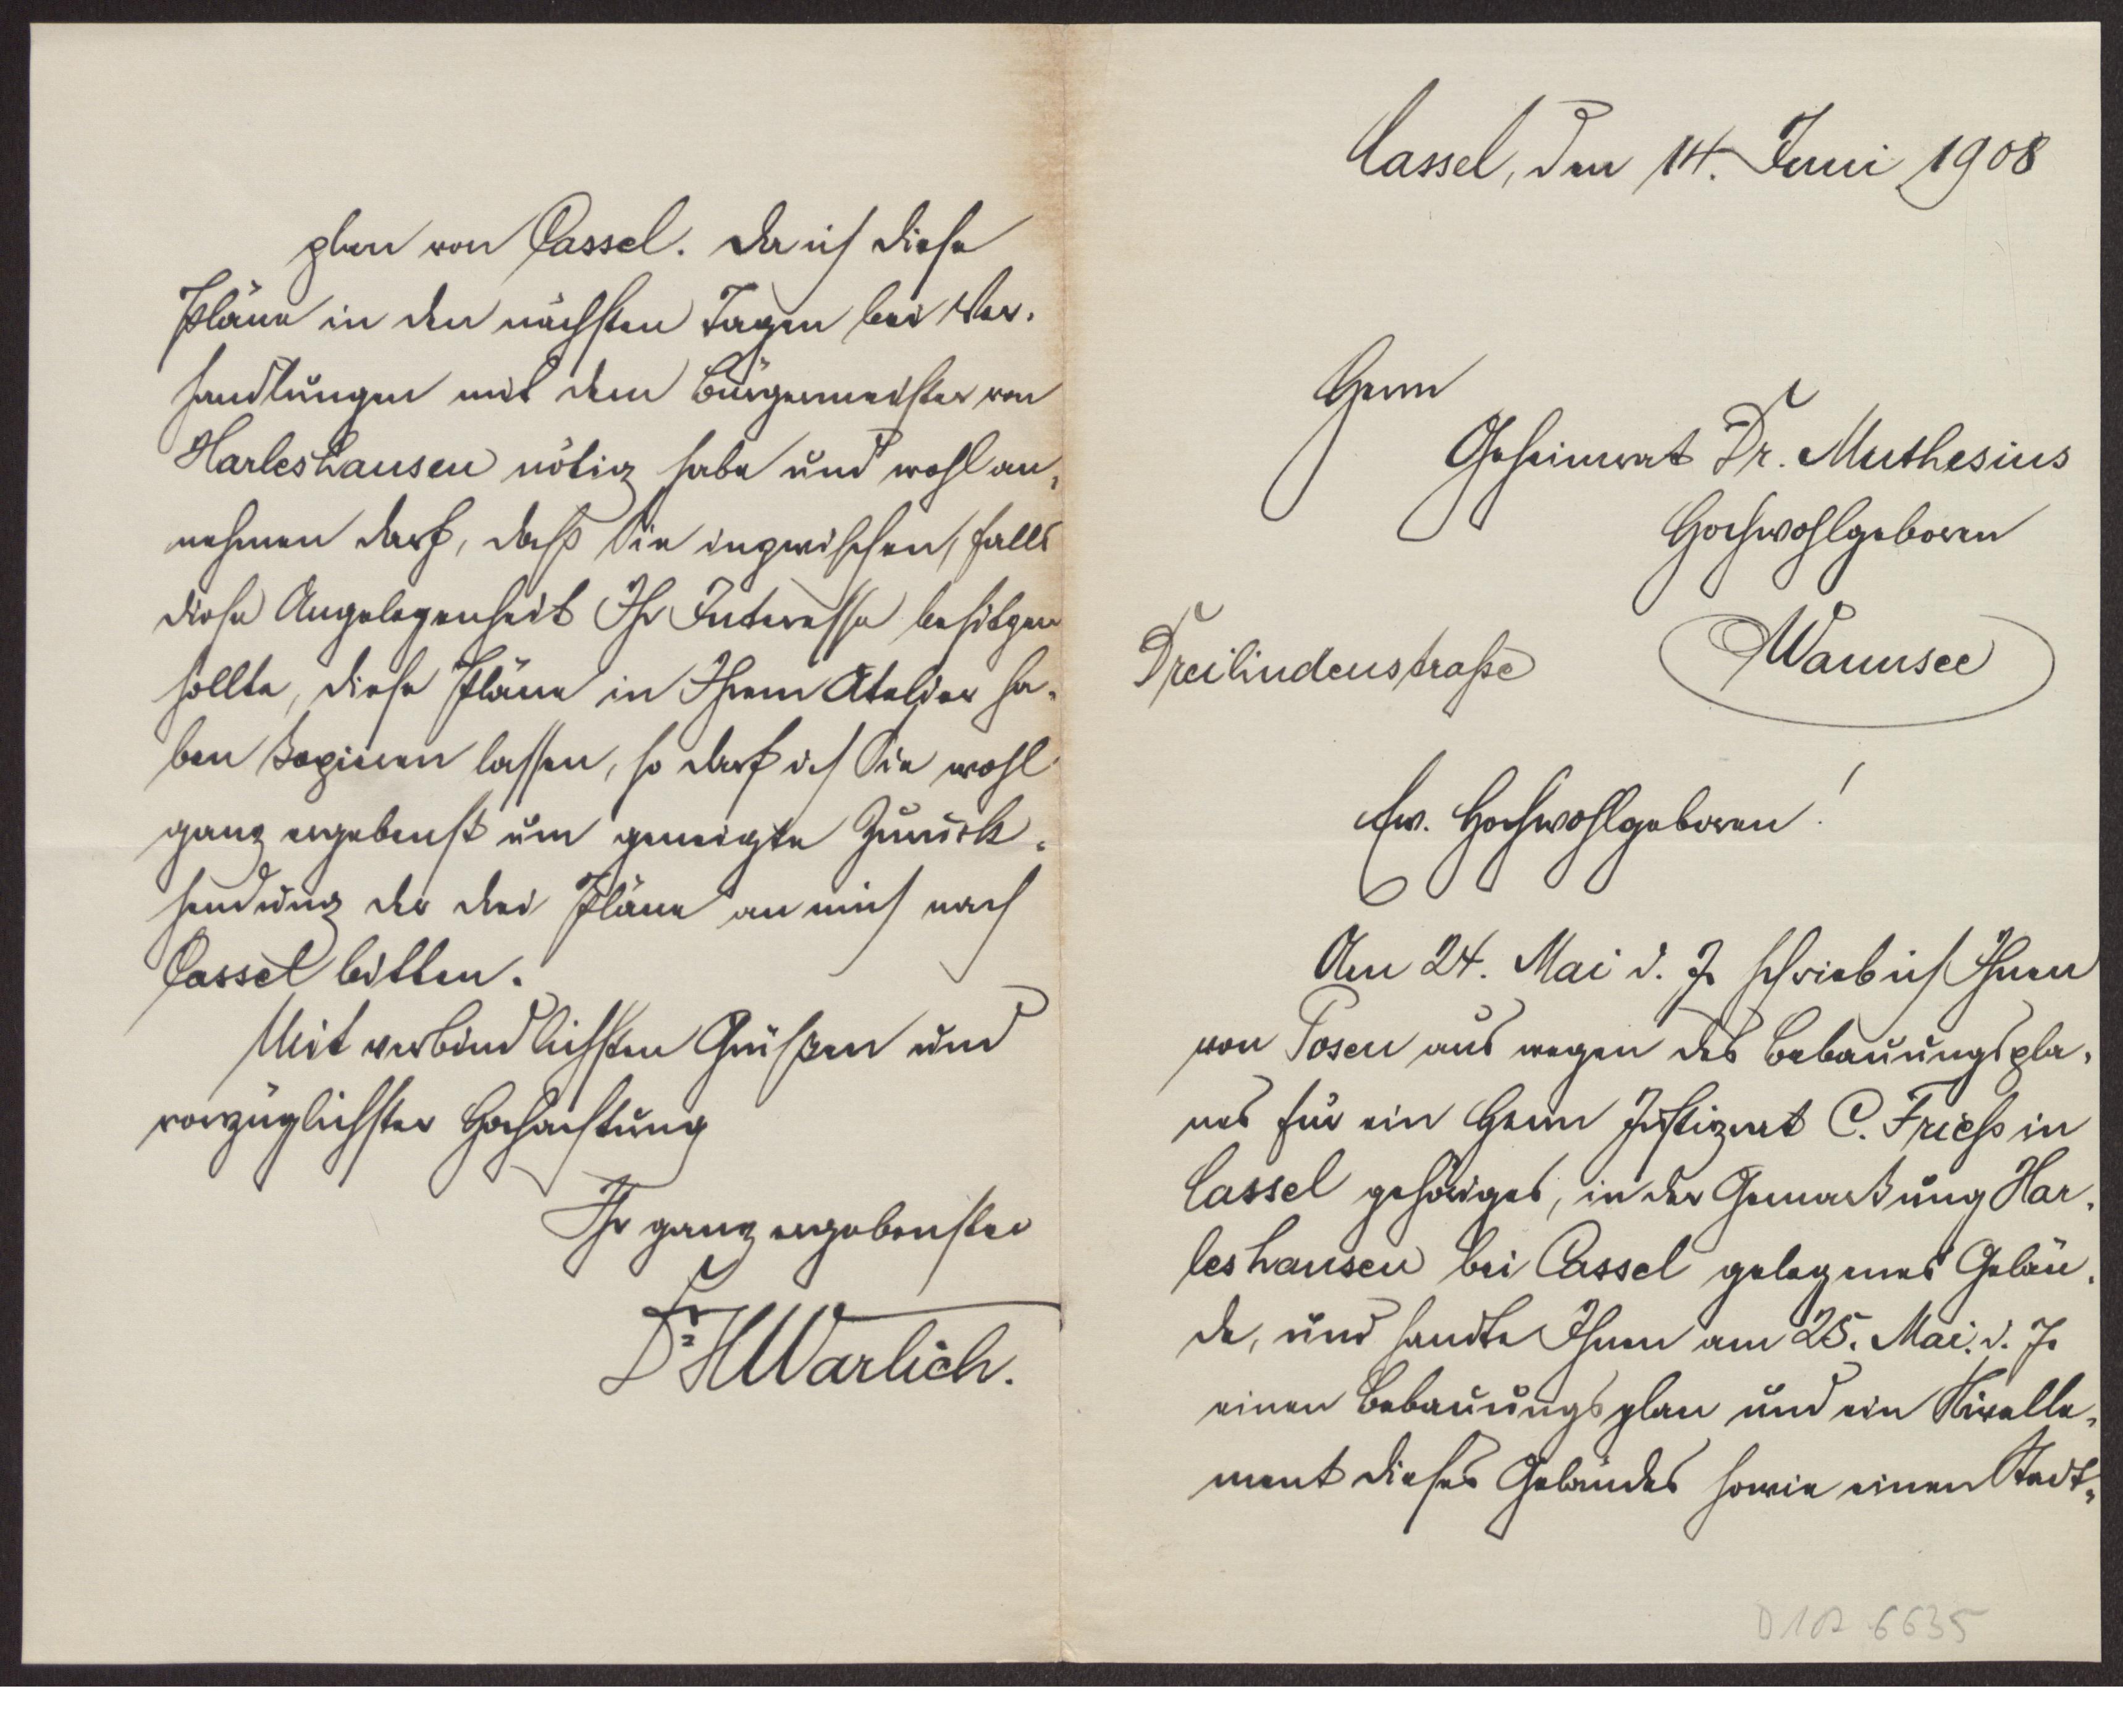 Cassel, den 14. Juni 1908
Herrn
Geheimrat Dr. Muthesius
Hochwohlgeboren
Wannsee
Dreilindenstraße
Ew. Hochwohlgeboren!
Am 24. Mai d. J. schrieb ich Ihnen
von Posen aus wegen des Bebauungspla-
nes für ein Herrn Justizrat C. Frieß in
Cassel gehöriges, in der Gemarkung Har-
leshausen bei Cassel gelegenes Gelän-
de, und sandte Ihnen am 25. Mai d. J.
einen Bebauungsplan und ein Nivelle-
ment dieses Geländes sowie einen Stadt-
D102 6635
plan von Cassel. Da ich diese
Pläne in den nächsten Tagen bei Ver-
handlungen mit dem Bürgermeister von
Harleshausen nötig habe und wohl an-
nehmen darf, daß Sie inzwischen, falls
diese Angelegenheit Ihr Interesse besitzen
sollte, diese Pläne in Ihrem Atelier ha-
ben kopieren lassen, so darf ich Sie wohl
ganz ergebenst um geneigte Zurück-
sendung der drei Pläne an mich nach
Cassel bitten.
Mit verbindlichsten Grüßen und
vorzüglichster Hochachtung
Ihr ganz ergebenster
Dr. H Warlich.